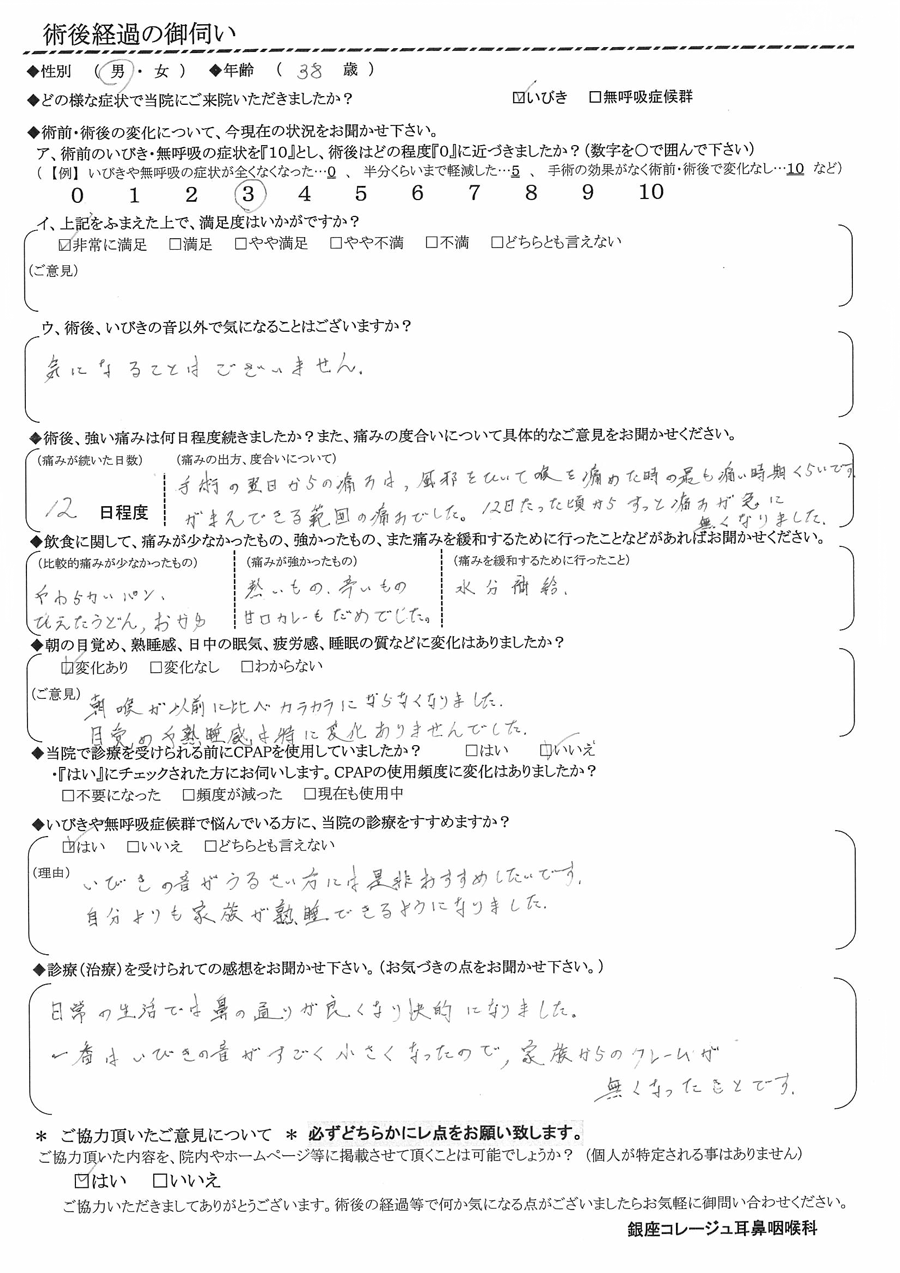 術後経過の御伺い
◆性別 （ 男 ・ 女 ） ◆年齢 （ 38 歳 ）
◆どの様な症状で当院にご来院いただきましたか？ ☑いびき □無呼吸症候群
◆術前・術後の変化について、今現在の状況をお聞かせ下さい。
ア、術前のいびき・無呼吸の症状を『10』とし、術後はどの程度『0』に近づきましたか？（数字を〇で囲んで下さい）
（【例】いびきや無呼吸の症状が全くなくなった…0 、 半分くらいまで軽減した…5 、 手術の効果がなく術前・術後で変化なし…10 など）
0 1 2 3 4 5 6 7 8 9 10
イ、上記をふまえた上で、満足度はいかがですか？
☑非常に満足 □満足 □やや満足 □やや不満 □不満 □どちらとも言えない
（ご意見）
ウ、術後、いびきの音以外で気になることはございますか？
気になることはございません.
◆術後、強い痛みは何日程度続きましたか？また、痛みの度合いについて具体的なご意見をお聞かせください。
（痛みが続いた日数） （痛みの出方、度合いについて）
手術の翌日からの痛みは, 風邪をひいて喉を痛めた時の最も痛い時期くらいです
12 日程度 がまんできる範囲の痛みでした。12日たった頃から すっと痛みが急に
無くなりました.
◆飲食に関して、痛みが少なかったもの、強かったもの、また痛みを緩和するために行ったことなどがあればお聞かせください。
（比較的痛みが少なかったもの） （痛みが強かったもの） （痛みを緩和するために行ったこと）
やわらかいパン、 熱いもの、辛いもの 水分補給.
ひえたうどん, おかゆ 甘口カレーもだめでした。
◆朝の目覚め、熟睡感、日中の眠気、疲労感、睡眠の質などに変化はありましたか？
☑変化あり □変化なし □わからない
（ご意見） 朝喉が以前に比べカラカラにならなくなりました.
目覚めや熟睡感は特に変化ありませんでした.
◆当院で診療を受けられる前にCPAPを使用していましたか？ □はい ☑いいえ
・『はい』にチェックされた方にお伺いします。CPAPの使用頻度に変化はありましたか？
□不要になった □頻度が減った □現在も使用中
◆いびきや無呼吸症候群で悩んでいる方に、当院の診療をすすめますか？
☑はい □いいえ □どちらとも言えない
（理由） いびきの音がうるさい方には是非おすすめしたいです.
自分よりも家族が熟睡できるようになりました.
◆診療（治療）を受けられての感想をお聞かせ下さい。（お気づきの点をお聞かせ下さい。）
日常の生活では鼻の通りが良くなり快的になりました。
一番はいびきの音がすごく小さくなったので, 家族からのクレームが
無くなったことです.
＊ ご協力頂いたご意見について ＊ 必ずどちらかにレ点をお願い致します。
ご協力頂いた内容を、院内やホームページ等に掲載させて頂くことは可能でしょうか？ （個人が特定される事はありません）
☑はい □いいえ
ご協力いただきましてありがとうございます。術後の経過等で何か気になる点がございましたらお気軽に御問い合わせください。
銀座コレージュ耳鼻咽喉科